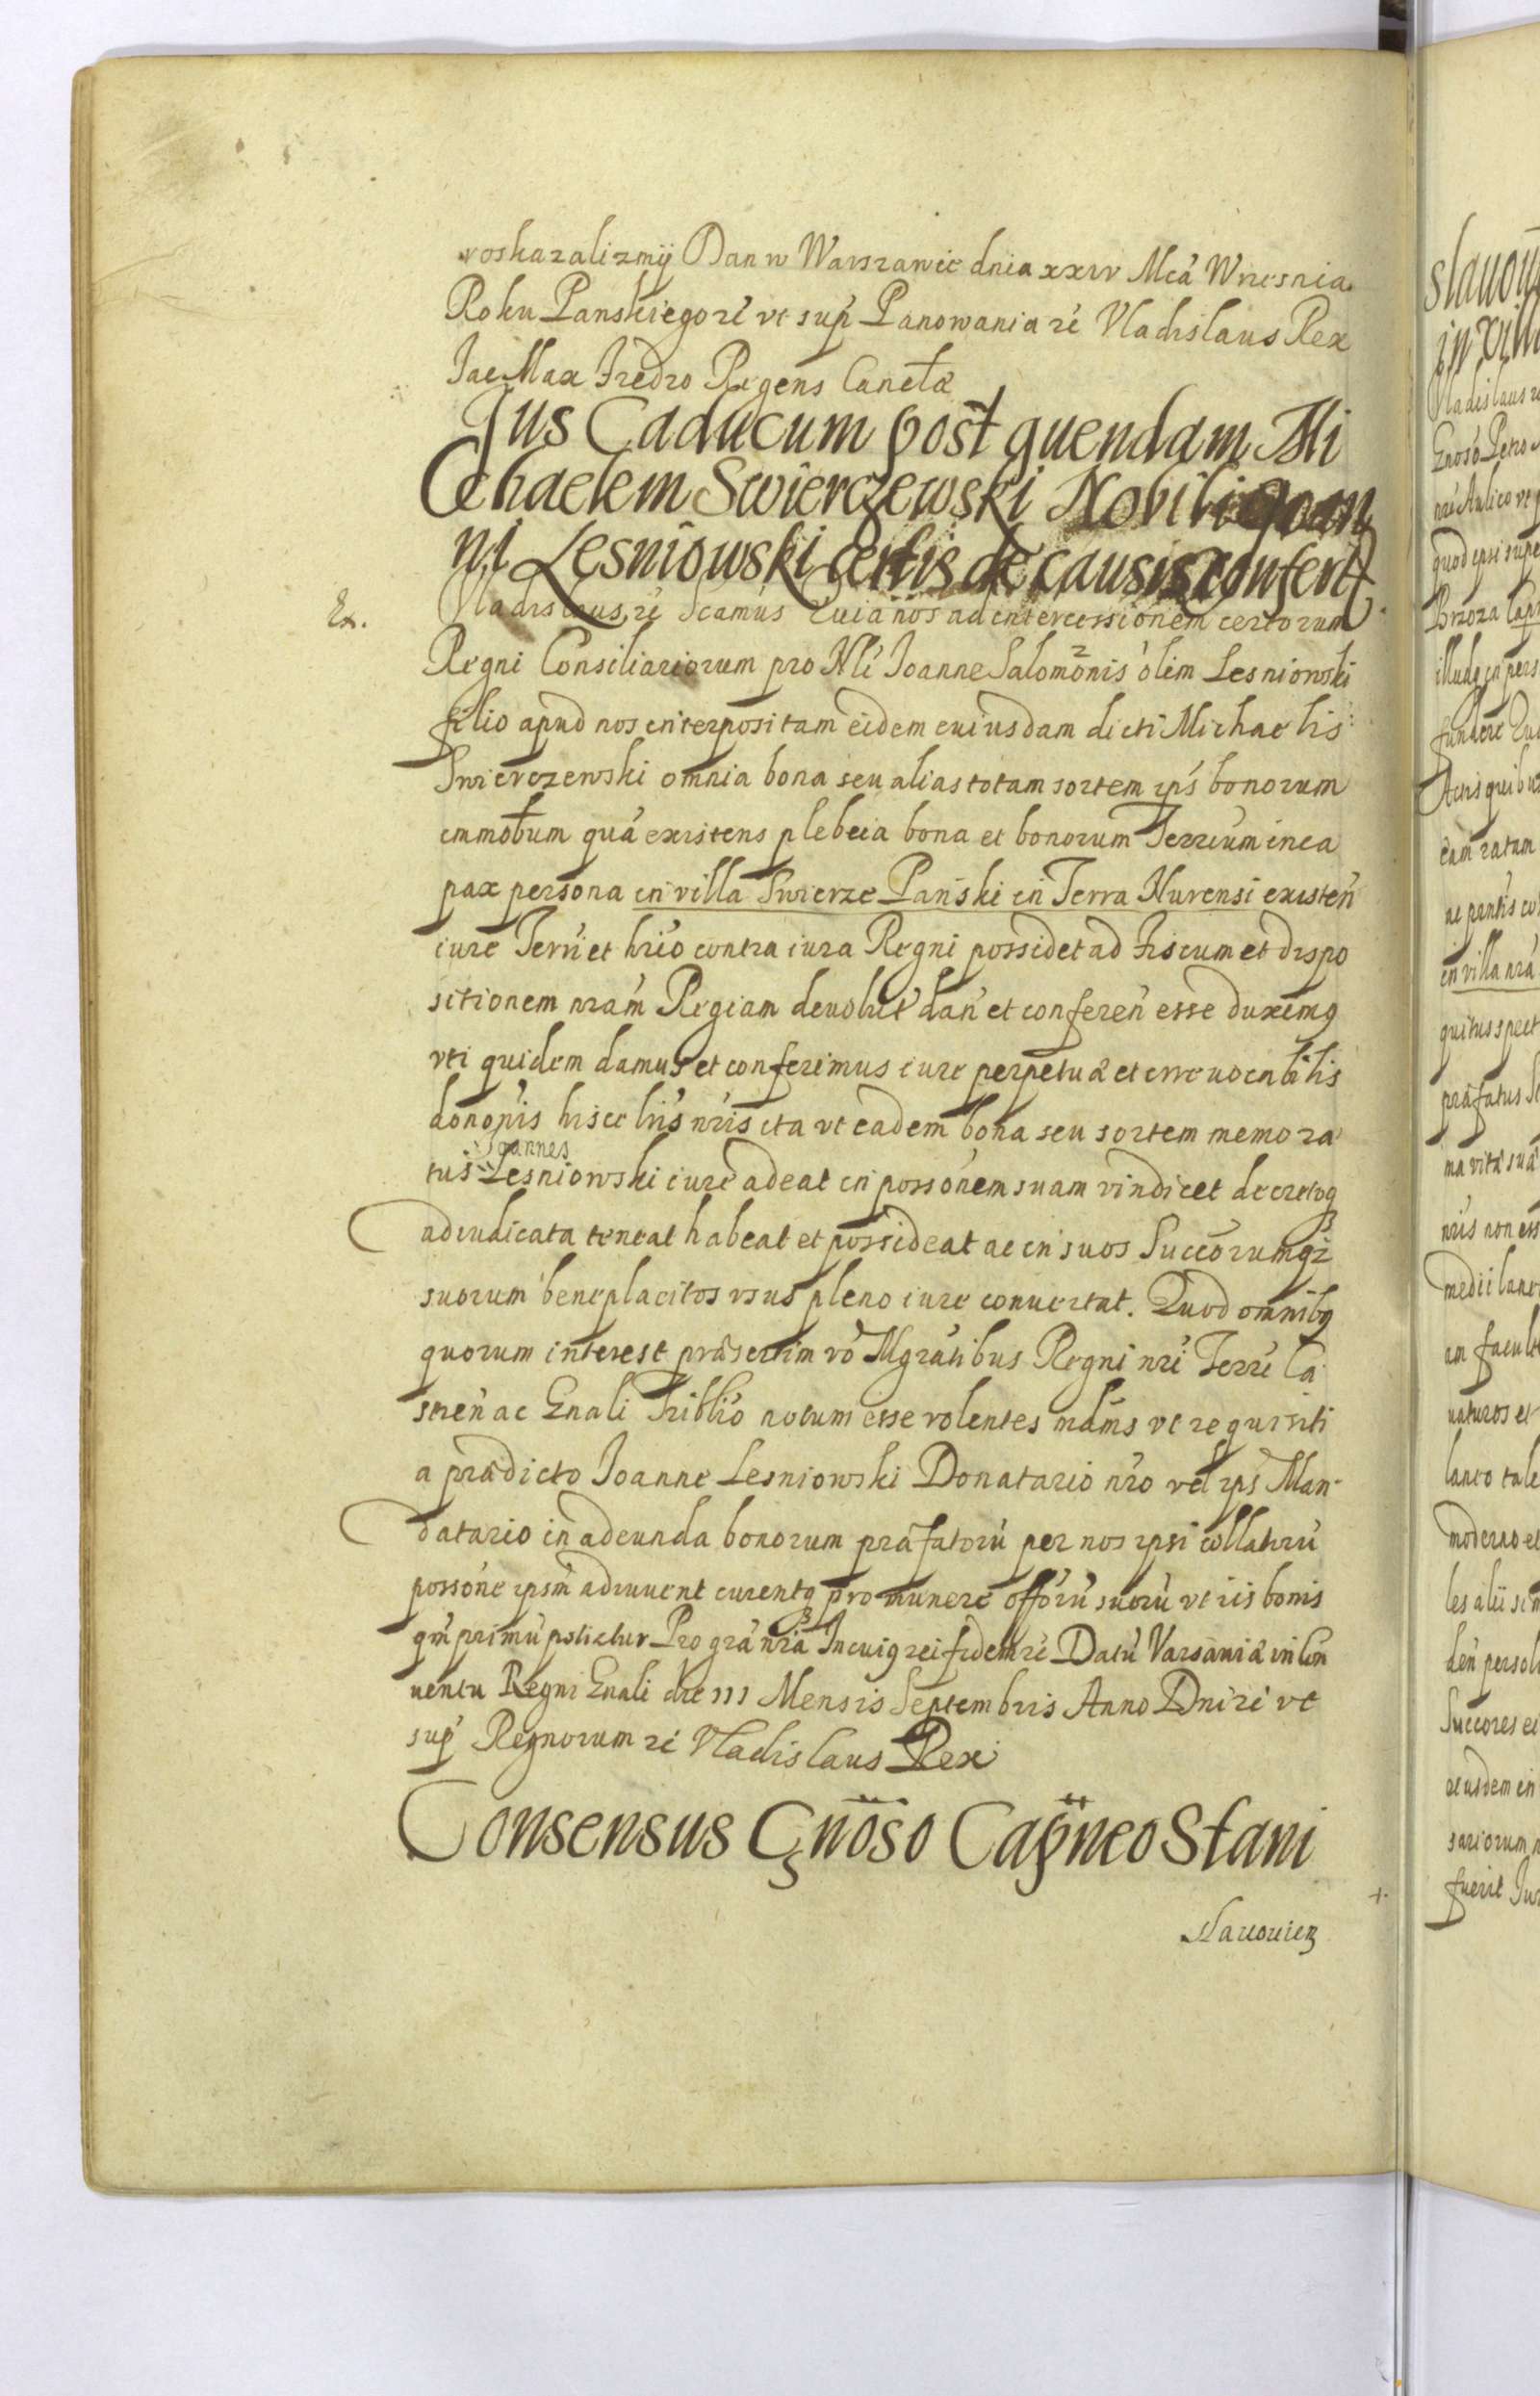 roskazalismÿ Dan w Warszawie dnia xxiv Mcá Wrzesnia
Roku Panskiego rć vt sup Panowania rć Vladislaus Rex
Jac Max Fredro Regens Canctæ
Jus Caducum post quendam Mi
chaelem Swierczewski Nobili Joan
ni Lesniowski certis de causis confert
Ex. Vladislaus rć Scamus Quia nos ad intercessionem certorum
Regni Consiliariorum pro Nli Joanne Salomonis olim Lesniowski
filio apud nos interpositam eidem cuiusdam dicti Michaelis
Swierczewski omnia bona seu alias totam sortem ips bonorum
immobum qua existens plebeia bona et bonorum Terrium inca
pax persona in villa Swierze Panski in Terra Nurensi existen
iure Terri et hrio contra iura Regni possidet ad Fiscum et dispo
sitionem nram Regiam devolut dan et conferen esse duximq
vti quidem damus et conferimus iure perpetuæ et irreuocabilis
dononis hisce lris nris ita vt eadem bona seu sortem memora
Joannes
tus Lesniowski iure adeat in possonem suam vindicet decretoq
adiudicata teneat habeat et possideat ac in suos Succorumqz
suorum beneplacitos vsus pleno iure conuertat. Quod omnibq
quorum interest præsertim vo Mgratibus Regni nri Terri Ca
stren ac Gnali Triblio notum esse volentes mdms vt requisiti
a prædicto Joanne Lesniowski Donatario nro vel ips Man
datario in adeunda bonorum præfatoru per nos ipsi collatoru
possone ipsm adiuuent curentq pro munere offoru suoru vt iis bonis
qm primu potietur Pro gra nra In cuiq rei fidem rć Datu Varsauiæ in Con
uentu Regni Gnali die III Mensis Septembris Anno Dni rć vt
sup Regnorum rć Vladislaus Rex
Consensus Gnoso Capneo Stani
slauouien